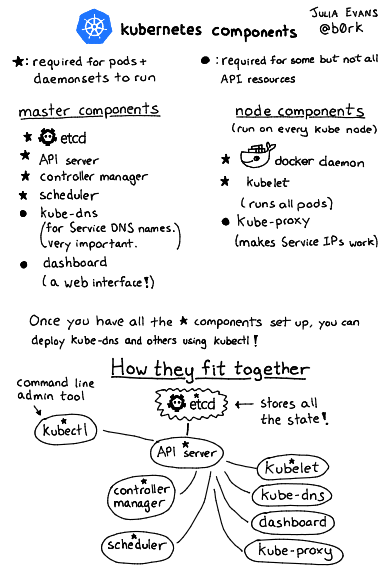 kubernetes components
JULIA EVANS
@b0rk
★: required for pods +
daemonsets to run
●: required for some but not all
API resources
master components
★ etcd
★ API server
★ controller manager
★ scheduler
● kube-dns
(for Service DNS names.
very important.)
● dashboard
(a web interface!)
node components
(run on every kube node)
★ docker daemon
★ kubelet
(runs all pods)
● kube-proxy
(makes Service IPs work)
Once you have all the ★ components set up, you can
deploy kube-dns and others using kubectl!
How they fit together
command line
admin tool
★
kubectl
★
etcd
← stores all
the state!
★
API server
★
controller
manager
★
scheduler
★
kubelet
kube-dns
dashboard
kube-proxy